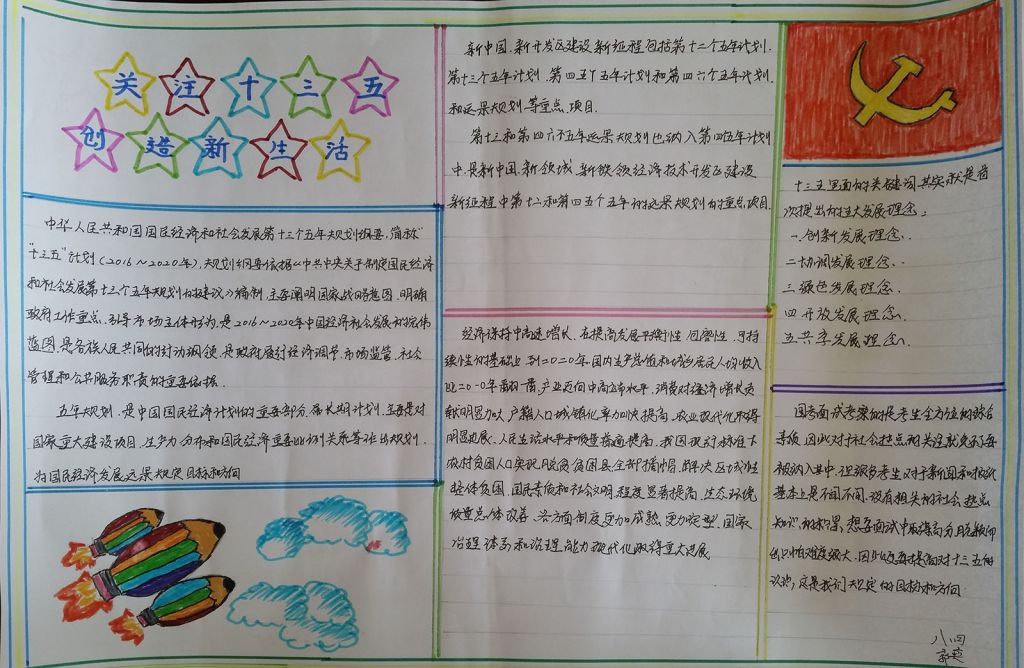 关注十三五
创造新生活
中华人民共和国国民经济和社会发展第十三个五年规划纲要，简称
“十三五”计划（2016～2020年），规划纲要依据《中共中央关于制定国民经济
和社会发展第十三个五年规划的建议》编制，主要阐明国家战略意图，明确
政府工作重点，引导市场主体行为，是2016～2020年中国经济社会发展的宏伟
蓝图，是各族人民共同的行动纲领，是政府履行经济调节，市场监管，社会
管理和公共服务职责的重要依据．
五年规划，是中国国民经济计划的重要部分，属长期计划，主要是对
国家重大建设项目，生产力分布和国民经济重要比例关系等作出规划，
为国民经济发展远景规定目标和方向
新中国，新开发区建设，新征程包括第十二个五年计划．
第十三个五年计划，第四五个五年计划和第四六个五年计划．
和远景规划等重点项目．
第十三和第四六个五年远景规划也纳入第四五年计划
中．是新中国，新领域，新铁领经济技术开发区建设
新征程中第十二和第四五个五年的远景规划的重点项目．
经济保持中高速增长，在提高发展平衡性，包容性，可持
续性的基础上，到二0二0年国内生产总值和城乡居民人均收入
比二0一0年翻一番，产业迈向中高端水平，消费对经济增长贡
献明显加大，户籍人口城镇化率加快提高，农业现代化取得
明显进展，人民生活水平和质量普遍提高，我国现行标准下
农村贫困人口实现脱贫，贫困县全部摘帽，解决区域性
整体贫困，国民素质和社会文明程度显著提高，生态环境
质量总体改善，各方面制度更加成熟更加定型，国家
治理体系和治理能力现代化取得重大进展
十三五里面的关键词，其实就是首
次提出的五大发展理念：
一．创新发展理念．
二协调发展理念．
三绿色发展理念．
四开放发展理念．
五共享发展理念．
国考面试考察的是考生全方位的综合
素质，因此对于社会热点的关注就免不了每
被纳入其中，但很多考生对于新闻和报纸
基本上是不闻不问，没有相关的社会热点
知识的积累，想要面试中取得高分脱颖而
出恐怕难度很大，因此要提高对十三五的
认识，这是我们规定的目标和方向
八．四